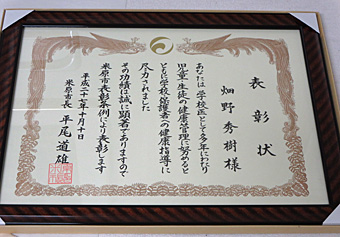 表彰状
畑野秀樹様
あなたは学校医として多年にわたり
児童・生徒の健康管理に努めると
ともに学校保護者への健康指導に
尽力されました
その功績は誠に顕著でありますので
米原市表彰条例により表彰します
平成二十八年十月十日
米原市長 平尾道雄